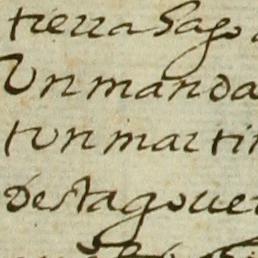 tierra Sago
Un manda
tun martin
desta gover